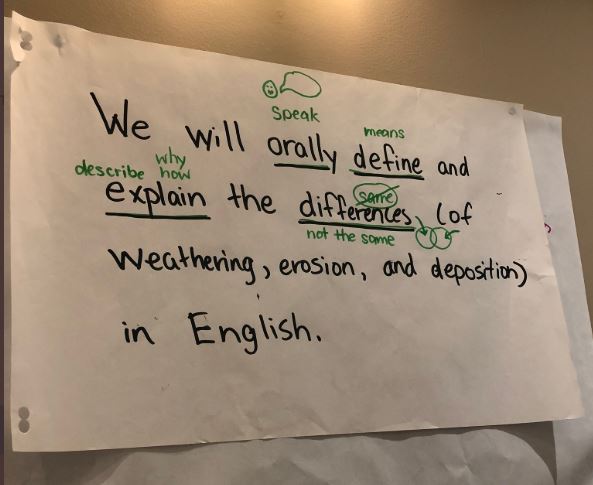 Speak
We will orally define and
means
describe why how
explain the differences, (of
same
not the same
weathering, erosion, and deposition)
in English.